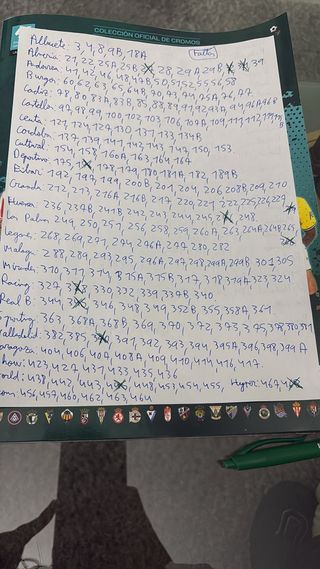 COLECCIÓN OFICIAL DE CROMOS
Faltas
Albacete: 3, 4, 8, 9B, 18A
Almería: 21, 22, 25A 25B 28, 29A 29B 39
Andorra: 41, 42, 46, 48, 49B 50, 52, 55 56 58
Burgos: 60, 62, 63, 65, 64B 70, 73, 74, 75A, 76, 77
Cádiz: 78, 80, 83A, 83B, 85, 88, 89, 91, 92, 93A, 94, 96A, 96B
Castellón: 97, 98, 99, 100, 102, 103, 106, 107A, 109, 111, 112
Ceuta: 121, 124, 127, 130, 131, 133, 134B
Córdoba: 137, 139, 141, 142, 143, 147, 150, 153
Cultural: 154, 158, 160A, 163, 164, 167
Deportivo: 175, 178, 179, 180, 181A, 182, 189B
Eibar: 192, 197, 199, 200B, 201, 204, 206, 208B, 209, 210
Granada: 212, 213, 216A, 216B, 217, 220, 221, 222, 225, 226, 229
Huesca: 236, 239A, 241B, 242, 243, 244, 245, 248
Las Palmas 249, 250, 251, 256, 258, 259, 260A, 263, 264A, 264B, 265
Leganés: 268, 269, 271, 274, 276A, 277, 280, 282
Málaga: 288, 289, 293, 295, 296A, 297, 298, 299A, 299B, 301, 305
Mirandés: 310, 311, 314, 315A, 315B, 317, 318, 319A, 323, 324
Racing: 327, 330, 332, 339, 337B, 340
Real B: 344, 346, 348, 349, 352B, 355, 358A, 361
Sporting: 363, 368A, 368B, 369, 370, 372, 373, 375, 378, 380, 381
Valladolid: 382, 385, 391, 392, 393, 394, 395A, 396, 398, 399A
Zaragoza: 404, 406, 407A, 408A, 409, 410, 414, 416, 417.
how: 423, 427, 431, 433, 435, 436
orld: 438, 442, 443, 448, 453, 454, 455, Hyper 467,
com, 456, 457, 460, 462, 463, 464